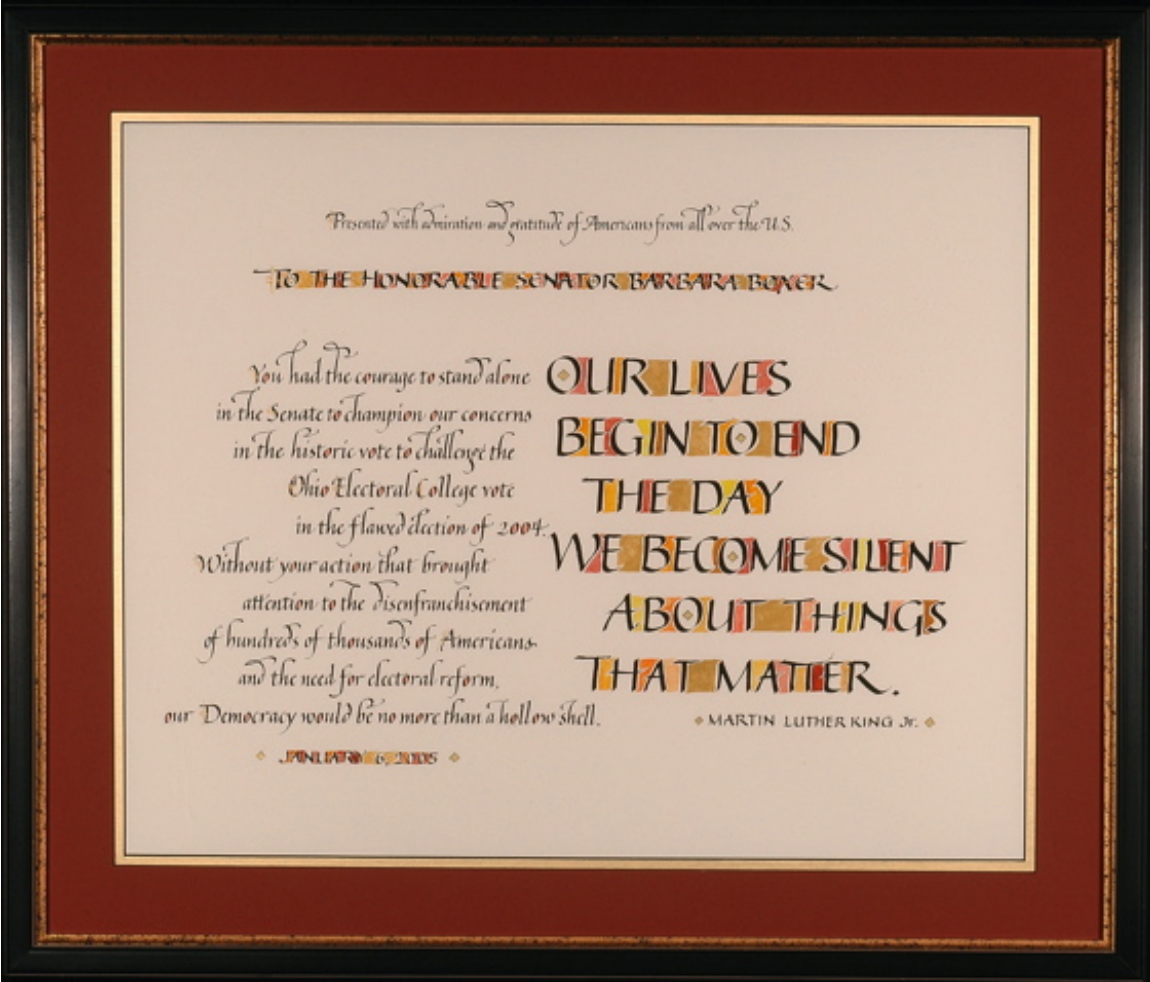 Presented with admiration and gratitude of Americans from all over the U.S.
TO THE HONORABLE SENATOR BARBARA BOXER
You had the courage to stand alone
in the Senate to champion our concerns
in the historic vote to challenge the
Ohio Electoral College vote
in the flawed election of 2004.
Without your action that brought
attention to the disenfranchisement
of hundreds of thousands of Americans
and the need for electoral reform,
our Democracy would be no more than a hollow shell.
JANUARY 6, 2005
OUR LIVES
BEGIN TO END
THE DAY
WE BECOME SILENT
ABOUT THINGS
THAT MATTER.
MARTIN LUTHER KING Jr.